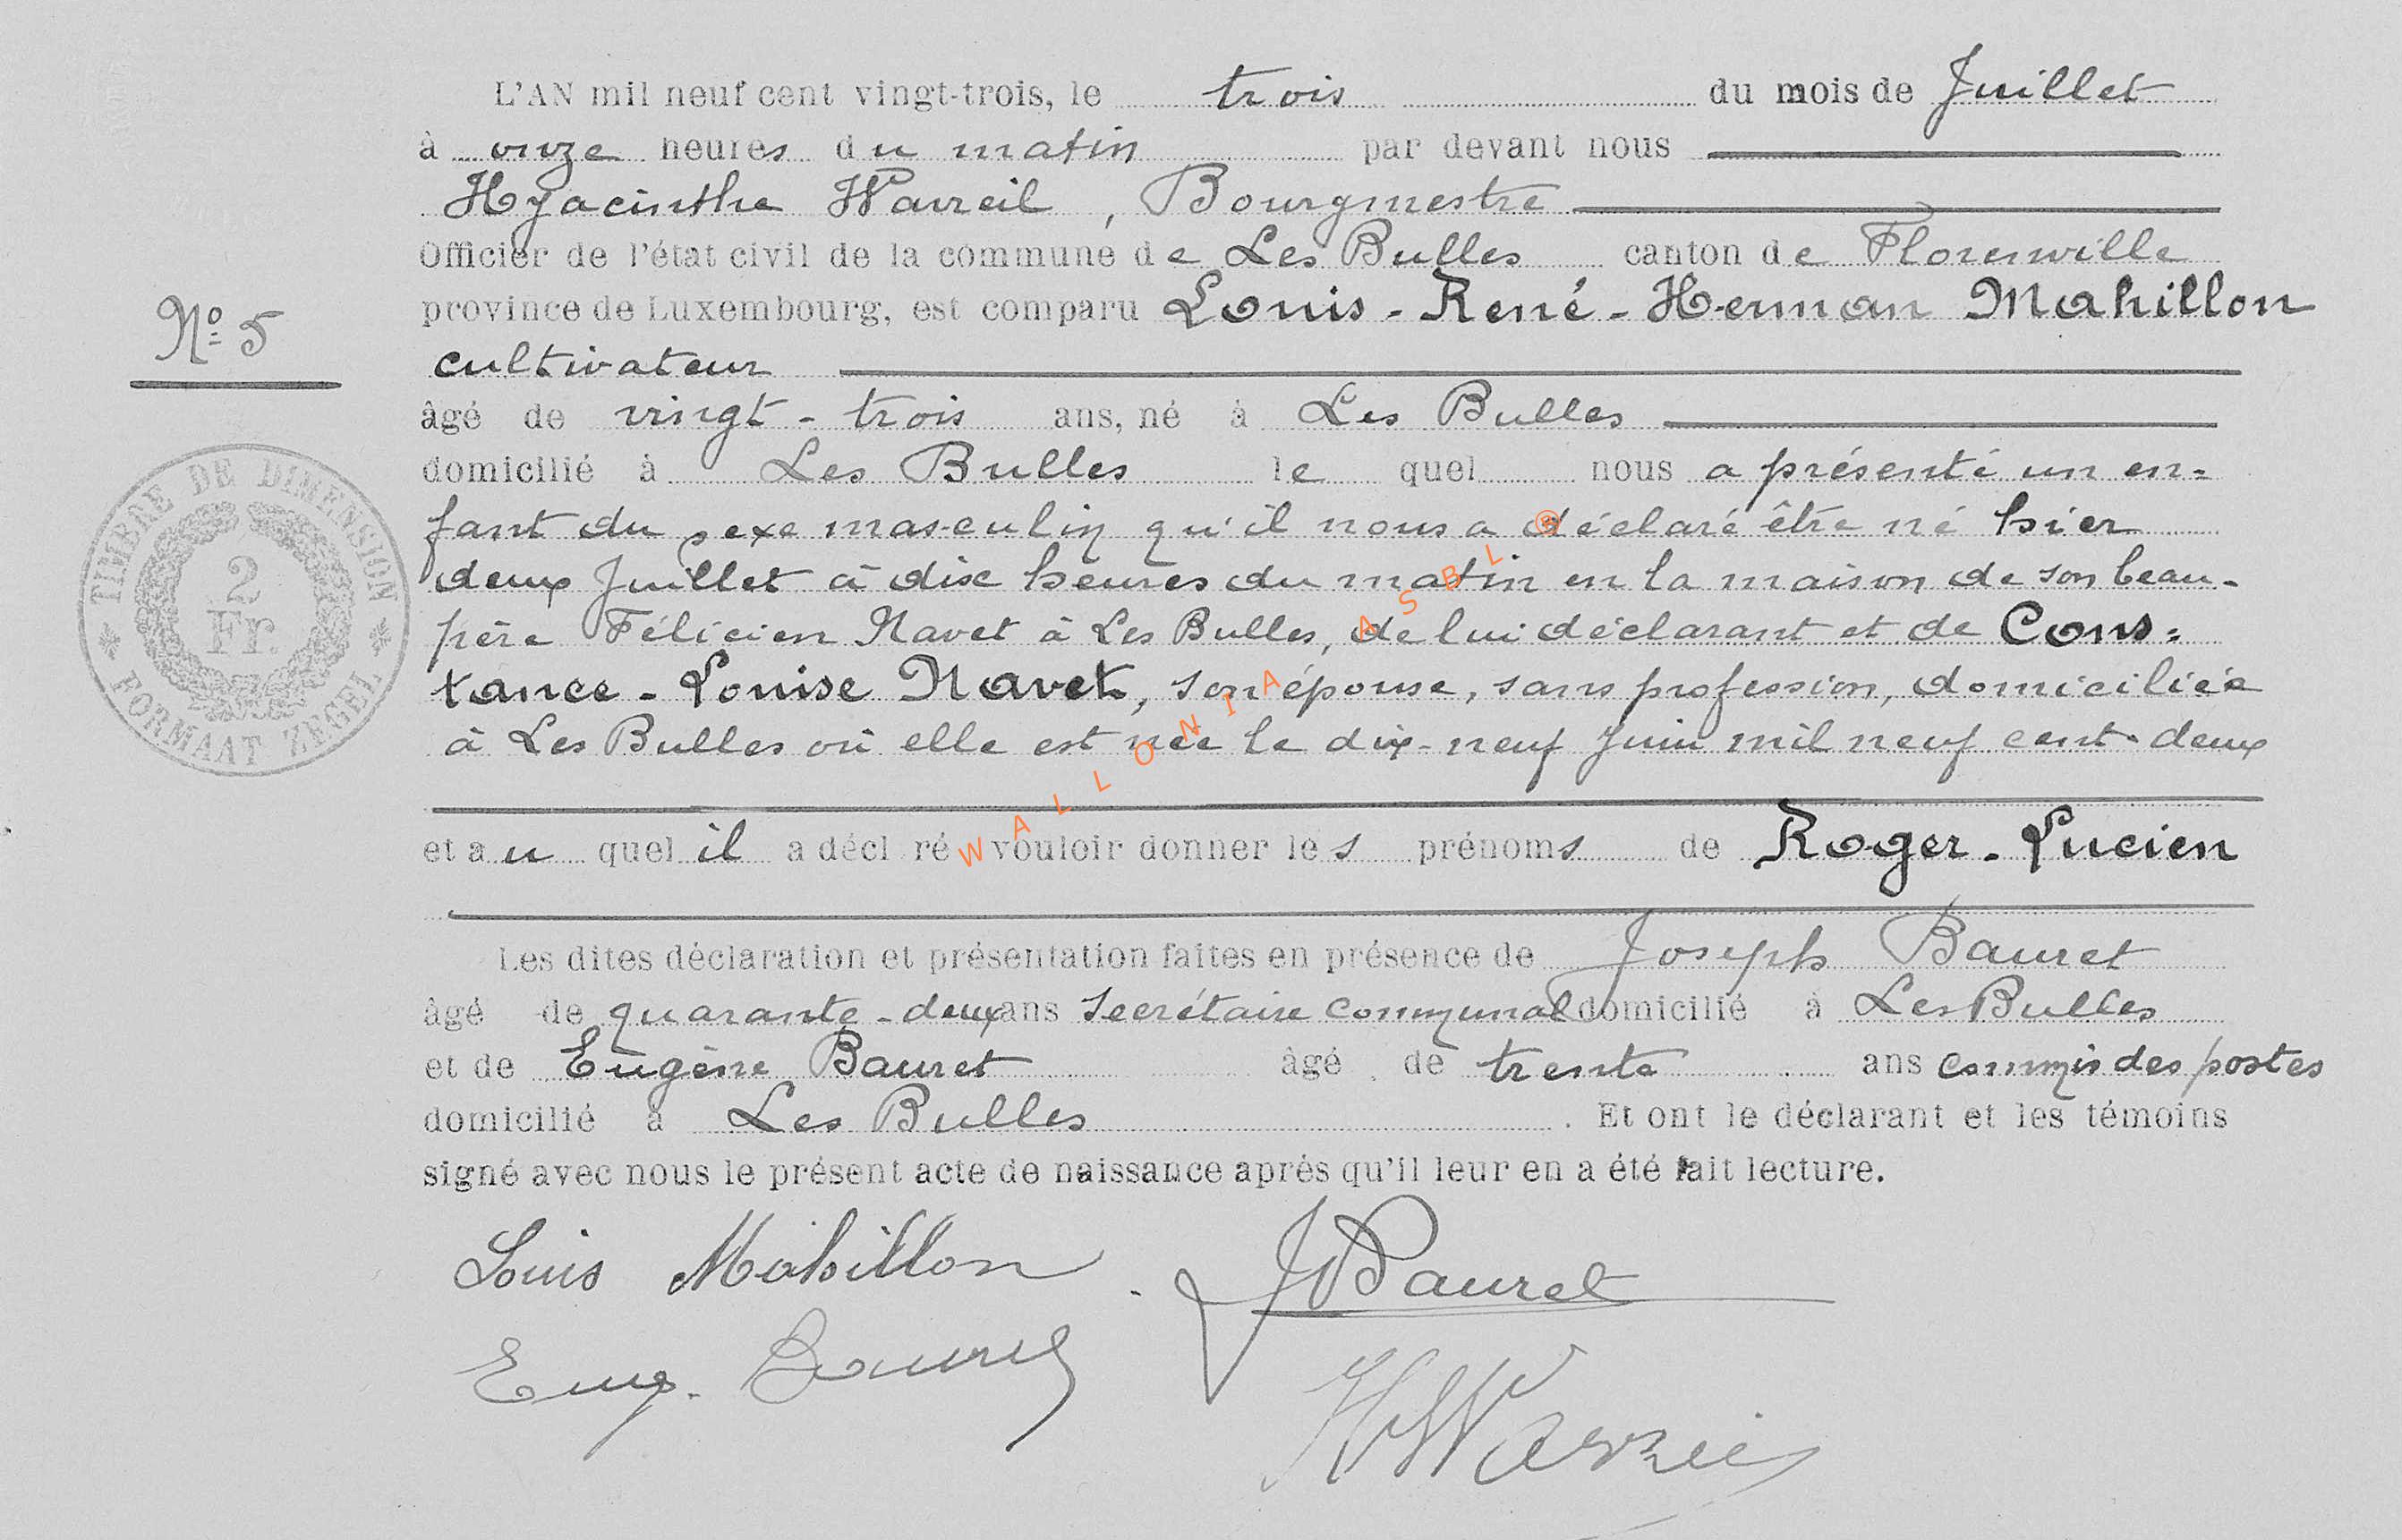 L'AN mil neuf cent vingt-trois, le trois du mois de Juillet
à onze heures du matin par devant nous
Hyacinthe Warzeil, Bourgmestre
Officier de l'état civil de la commune de Les Bulles canton de Florenville
province de Luxembourg, est comparu Louis-René-Herman Mahillon
N° 5
cultivateur
âgé de vingt-trois ans, né à Les Bulles
domicilié à Les Bulles le quel nous a présenté un en=
fant du sexe masculin qu'il nous a déclaré être né hier
deux Juillet à dix heures du matin en la maison de son beau-
père Félicien Navet à Les Bulles, de lui déclarant et de Cons=
tance-Louise Navet, son épouse, sans profession, domiciliée
à Les Bulles où elle est née le dix-neuf Juin mil neuf cent deux
et au quel il a décl ré vouloir donner les prénoms de Roger-Lucien
Les dites déclaration et présentation faites en présence de Joseph Bauret
âgé de quarante-deux ans Secrétaire communal domicilié à Les Bulles
et de Eugène Bauret âgé de trente ans commis des postes
domicilié à Les Bulles. Et ont le déclarant et les témoins
signé avec nous le présent acte de naissance après qu'il leur en a été fait lecture.
Louis Mahillon JBauret
Eug. Bauret
TIMBRE DE DIMENSION
2
Fr.
FORMAAT ZEGEL
WALLONIA ASBL ®